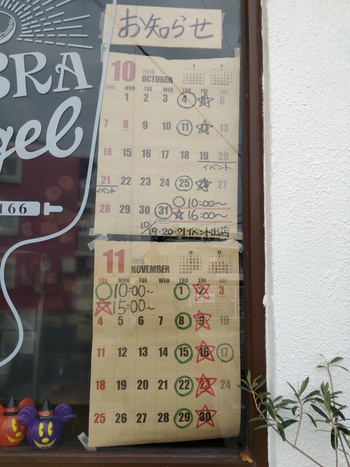 お知らせ
BRA
gel
166
10 2018 OCTOBER
SUN MON TUE WED THU FRI SAT
1 2 3 4 5 6
7 8 9 10 11 12 13
14 15 16 17 18 19 20
イベント
21 22 23 24 25 26 27
イベント
28 29 30 31
○10:00〜
☆16:00〜
10/19・20・21イベント出店
11 2018 NOVEMBER
SUN MON TUE WED THU FRI SAT
1 2 3
○10:00〜
☆15:00〜
4 5 6 7 8 9 10
11 12 13 14 15 16 17
18 19 20 21 22 23 24
25 26 27 28 29 30